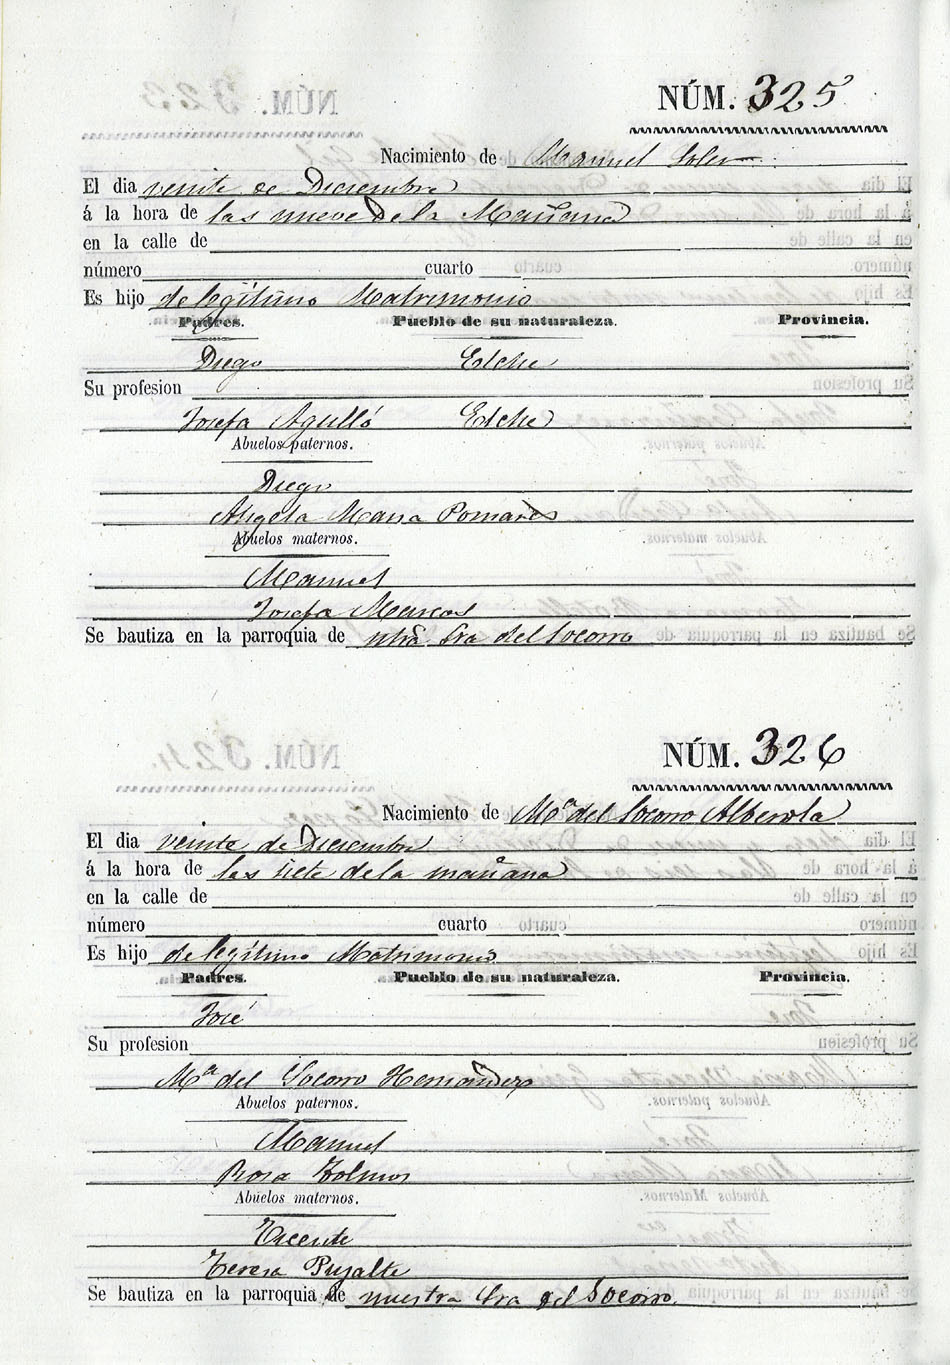 NÚM. 325
Nacimiento de Manuel Soler
El dia veinte de Diciembre
á la hora de las nueve de la Mañana
en la calle de
número cuarto
Es hijo de legítimo Matrimonio
Padres. Pueblo de su naturaleza. Provincia.
Diego Elche
Su profesion
Josefa Agulló Elche
Abuelos paternos.
Diego
Angela Maria Pomares
Abuelos maternos.
Manuel
Josefa Marcos
Se bautiza en la parroquia de ntra Sra del Socorro
NÚM. 326
Nacimiento de Mª del Socorro Alberola
El dia veinte de Diciembre
á la hora de las siete de la mañana
en la calle de
número cuarto
Es hijo de legítimo Matrimonio
Padres. Pueblo de su naturaleza. Provincia.
José
Su profesion
Mª del Socorro Hernandez
Abuelos paternos.
Manuel
Rosa
Abuelos maternos.
Vicente
Teresa Pujalte
Se bautiza en la parroquia de nuestra Sra del Socorro.